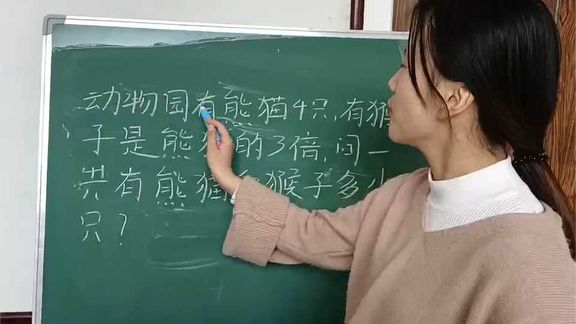 动物园有熊猫4只,有猴
子是熊猫的3倍,问一
共有熊猫和猴子多少
只?